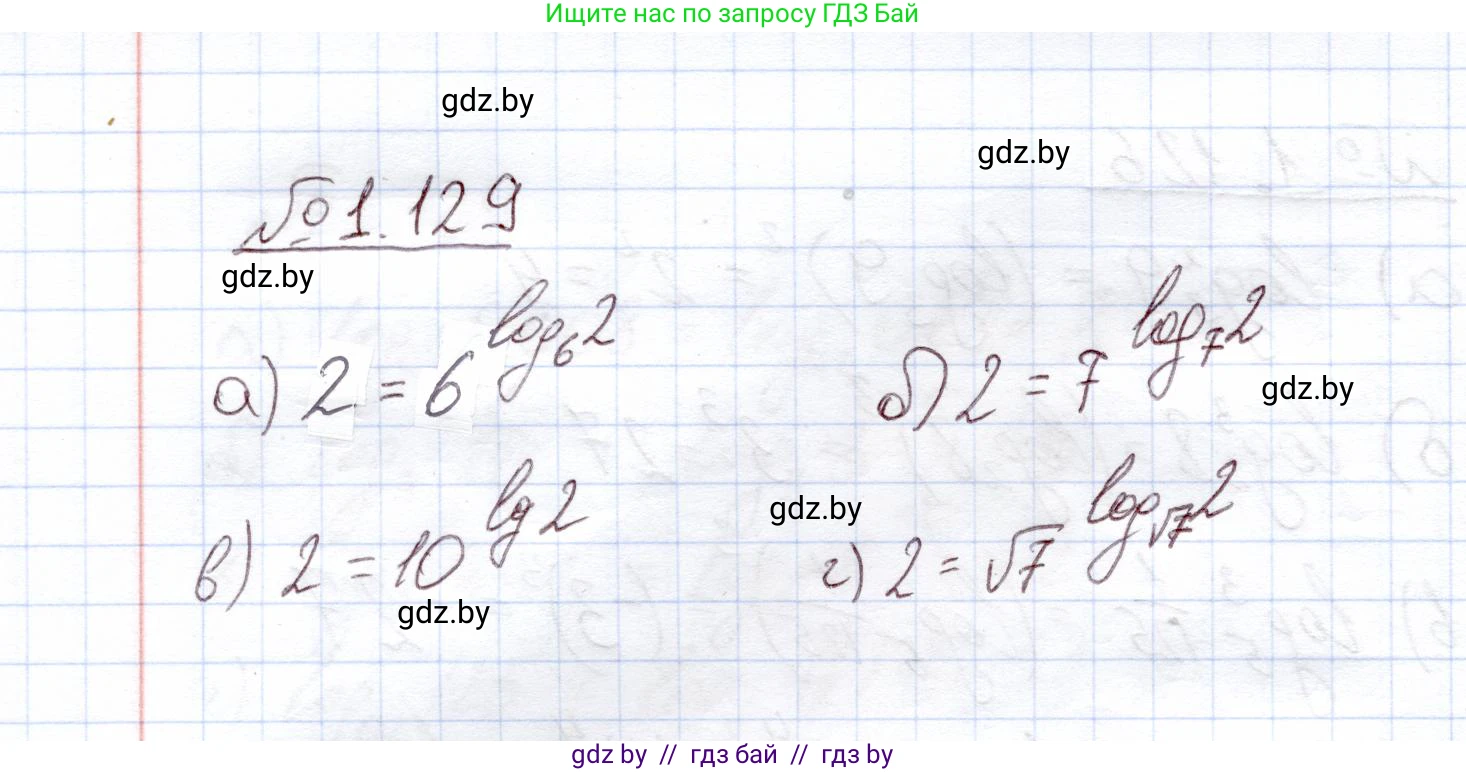 Ищите нас по запросу ГДЗ Бай
gdz.by
gdz.by
№ 1.129
gdz.by
а) 2 = 6^log₆2
б) 2 = 7^log₇2
gdz.by
в) 2 = 10^lg 2
gdz.by
г) 2 = √7^log_√7 2
gdz.by
gdz by // гдз бай // гдз by